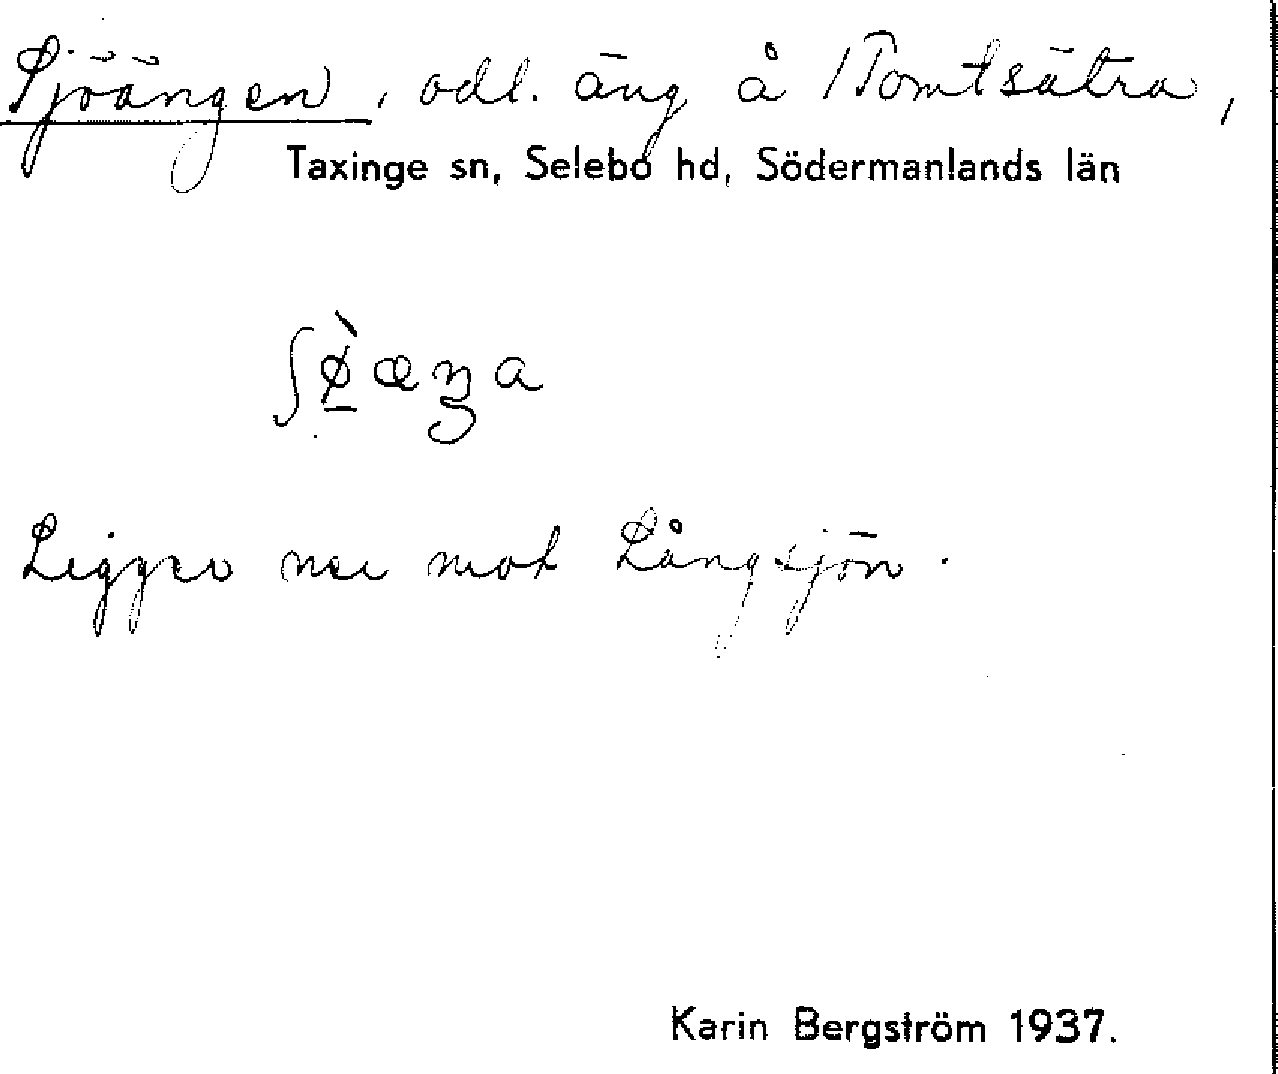 Sjöängen, odl. äng å /Tomtsätra,
Taxinge sn, Selebo hd, Södermanlands län
ʃø̠̀æŋa
Ligger ner mot Långsjön.
Karin Bergström 1937.